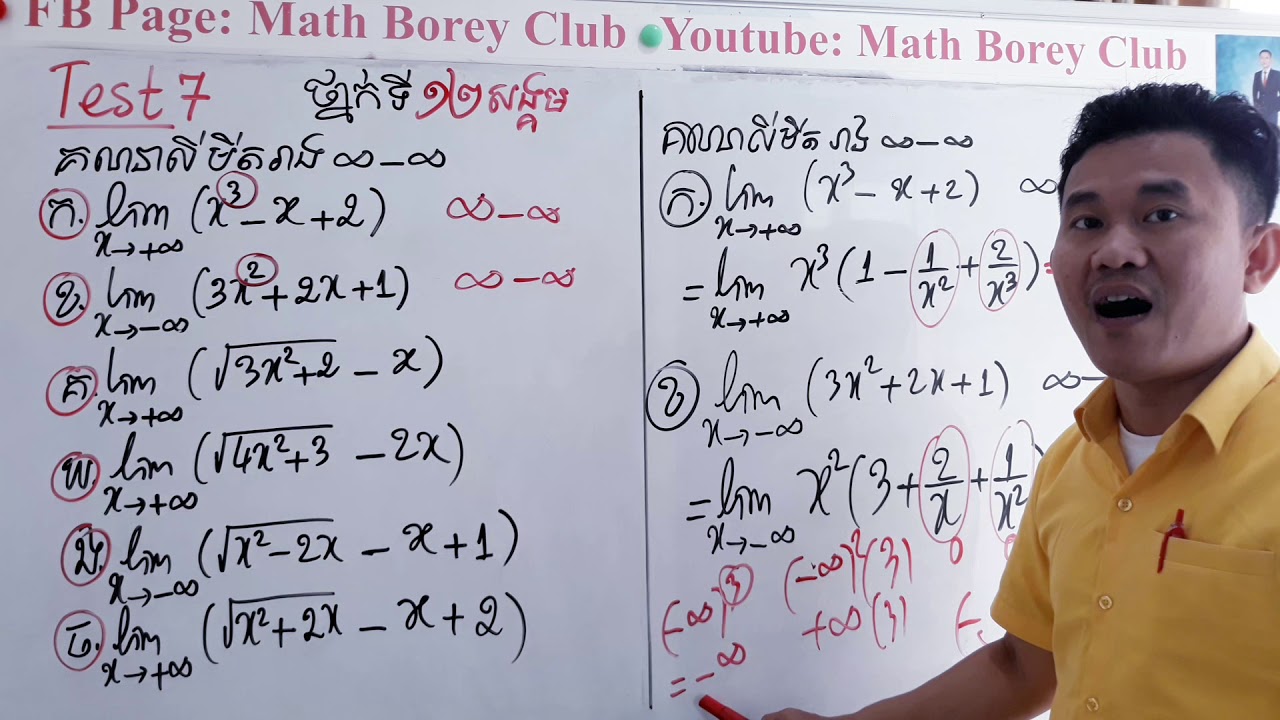 FB Page: Math Borey Club Youtube: Math Borey Club
Test 7 ថ្នាក់ទី ១២ សង្គម
គណនាលីមីតរាង ∞ - ∞
ក. lim x→+∞ (x³ - x + 2) ∞ - ∞
ខ. lim x→-∞ (3x² + 2x + 1) ∞ - ∞
គ. lim x→+∞ (√(3x²+2) - x)
ឃ. lim x→+∞ (√(4x²+3) - 2x)
ង. lim x→-∞ (√(x²-2x) - x + 1)
ច. lim x→+∞ (√(x²+2x) - x + 2)
គណនាលីមីតរាង ∞ - ∞
ក. lim x→+∞ (x³ - x + 2) ∞
= lim x→+∞ x³(1 - 1/x² + 2/x³) =
ខ lim x→-∞ (3x² + 2x + 1) ∞ -
= lim x→-∞ x²(3 + 2/x + 1/x²)
(-∞)³ (-∞)²(3) 0
= -∞ +∞(3) (-